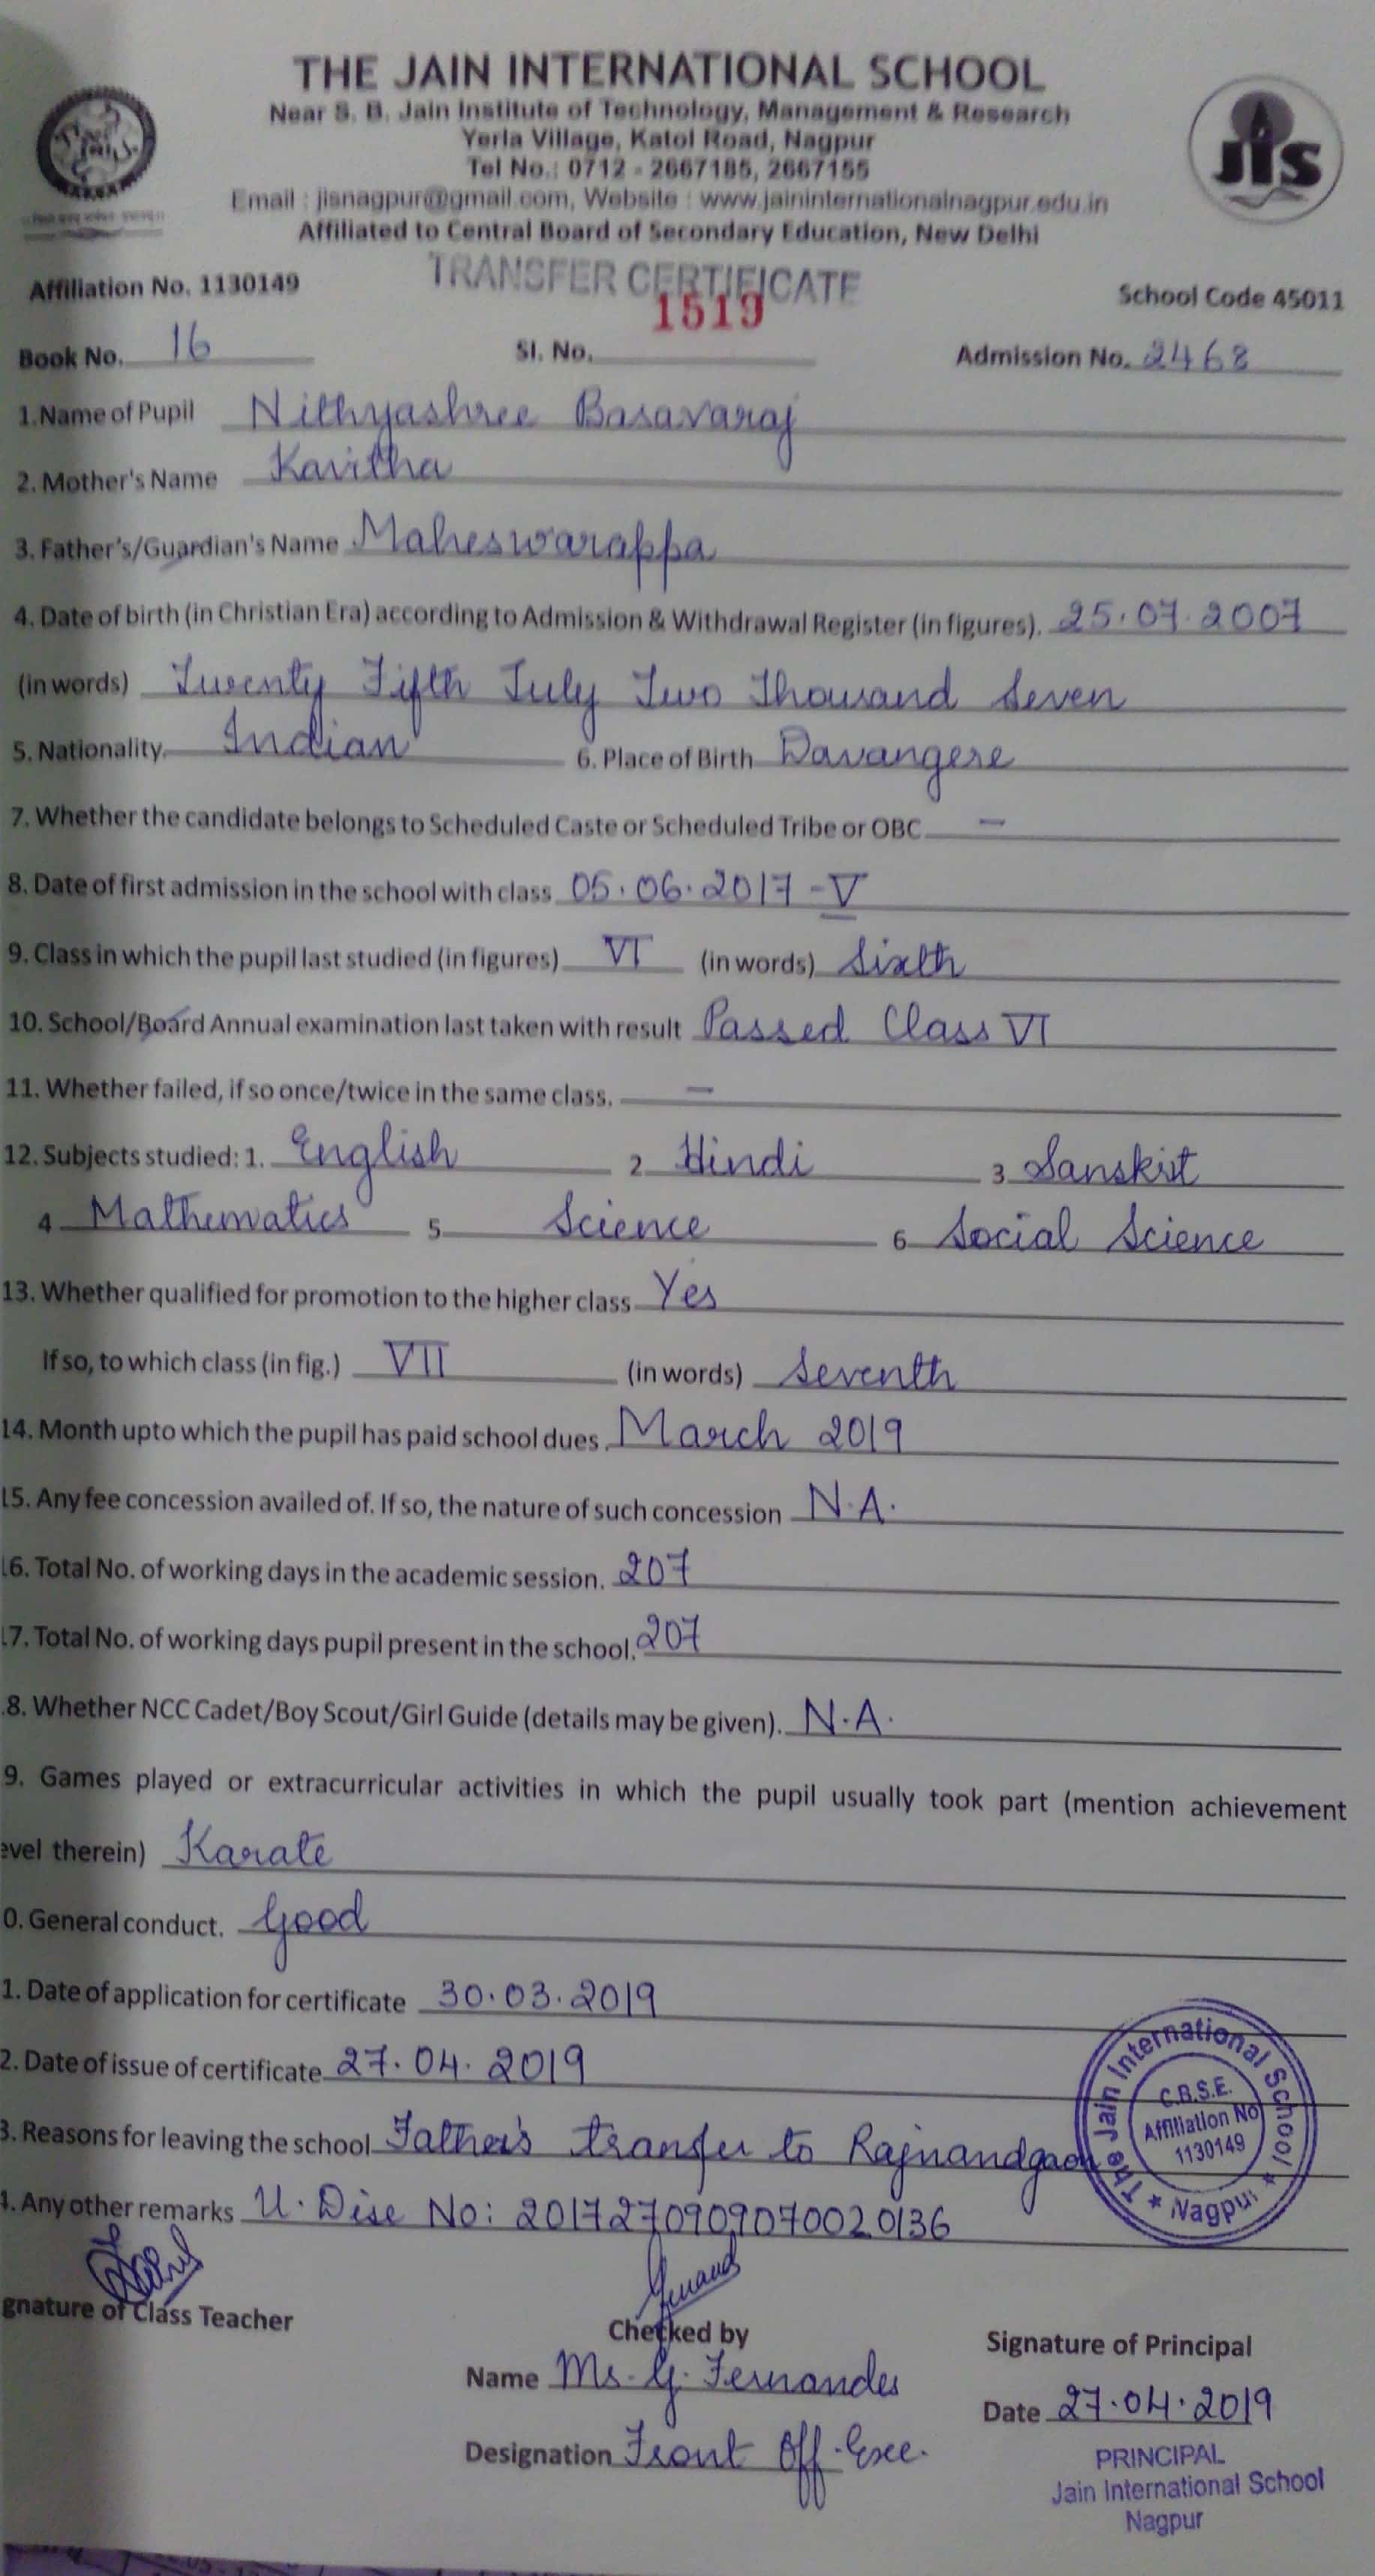 THE JAIN INTERNATIONAL SCHOOL
Near S. B. Jain Institute of Technology, Management & Research
Yerla Village, Katol Road, Nagpur
Tel No.: 0712 - 2667185, 2667155
Email : jisnagpur@gmail.com, Website : www.jaininternationalnagpur.edu.in
Affiliated to Central Board of Secondary Education, New Delhi
JIS
Affiliation No. 1130149 TRANSFER CERTIFICATE School Code 45011
1519
Book No. 16 Sl. No. Admission No. 2468
1.Name of Pupil Nithyashree Basavaraj
2. Mother's Name Kavitha
3. Father's/Guardian's Name Maheswarappa
4. Date of birth (in Christian Era) according to Admission & Withdrawal Register (in figures). 25.07.2007
(in words) Twenty Fifth July Two Thousand Seven
5. Nationality Indian 6. Place of Birth Davangere
7. Whether the candidate belongs to Scheduled Caste or Scheduled Tribe or OBC –
8. Date of first admission in the school with class 05.06.2017 - V
9. Class in which the pupil last studied (in figures) VI (in words) Sixth
10. School/Board Annual examination last taken with result Passed Class VI
11. Whether failed, if so once/twice in the same class. –
12. Subjects studied: 1. English 2 Hindi 3 Sanskrit
4 Mathematics 5 Science 6 Social Science
13. Whether qualified for promotion to the higher class Yes
If so, to which class (in fig.) VII (in words) Seventh
14. Month upto which the pupil has paid school dues. March 2019
15. Any fee concession availed of. If so, the nature of such concession N.A.
16. Total No. of working days in the academic session. 207
17. Total No. of working days pupil present in the school. 207
8. Whether NCC Cadet/Boy Scout/Girl Guide (details may be given). N.A.
9. Games played or extracurricular activities in which the pupil usually took part (mention achievement
evel therein) Karate
0. General conduct. Good
1. Date of application for certificate 30.03.2019
2. Date of issue of certificate 27.04.2019
3. Reasons for leaving the school Father's transfer to Rajnandgaon
4. Any other remarks U.Dise No: 2017270909070020136
The Jain International School
C.B.S.E.
Affiliation No
1130149
★ Nagpur ★
gnature of Class Teacher
Checked by
Signature of Principal
Name Ms. G. Fernandes
Date 27.04.2019
Designation Front Off. Exec.
PRINCIPAL
Jain International School
Nagpur